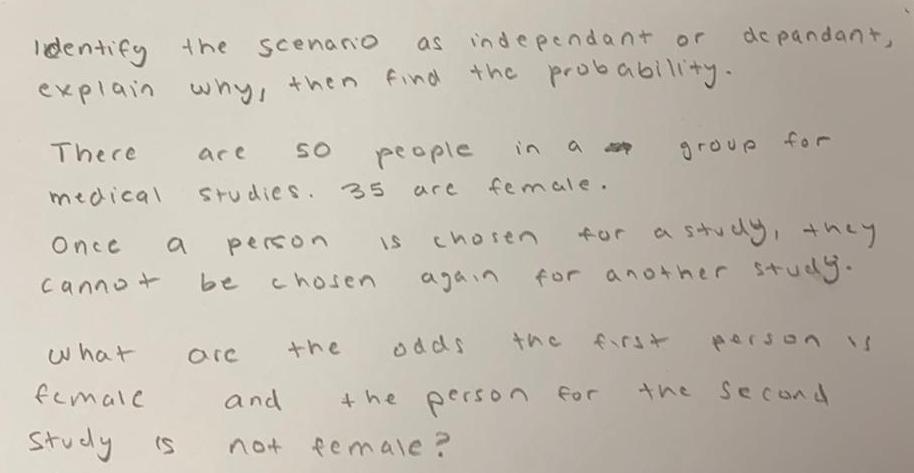 Identify the scenario as independant or depandant,
explain why, then find the probabillity.
There are 50 people in a group for
medical studies. 35 are female.
Once a person is chosen for a study, they
cannot be chosen again for another study.
What are the odds the first person is
female and the person for the second
study is not female?